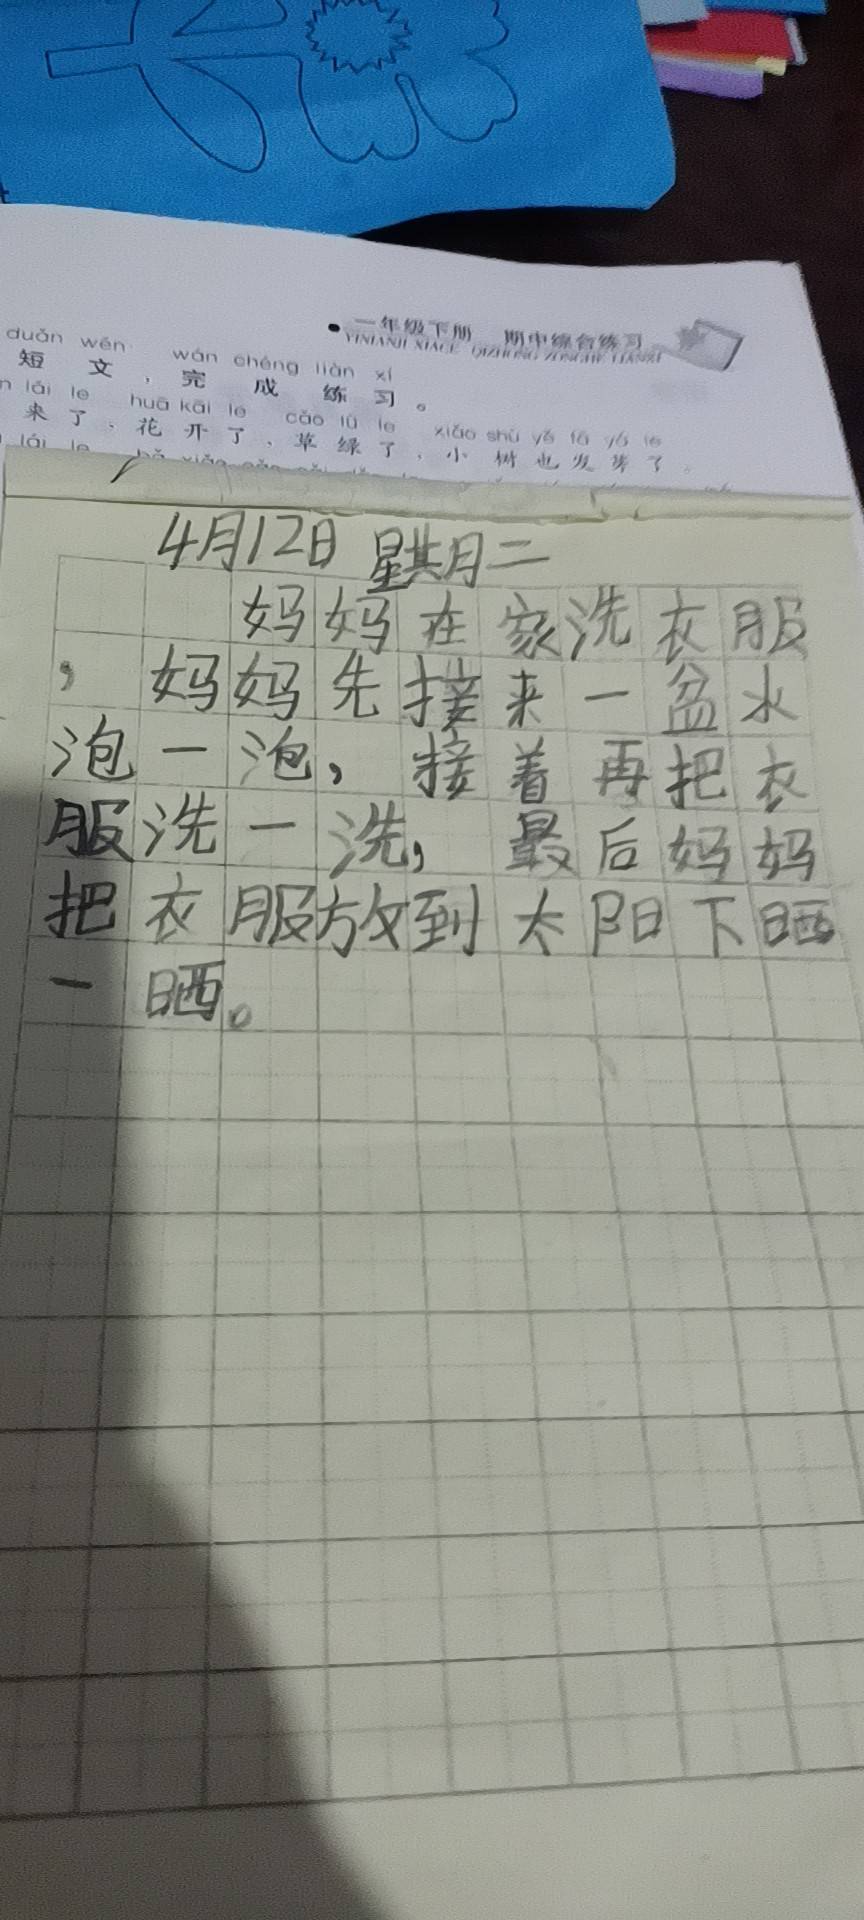 一年级下册 期中综合练习
YINIANJI XIACE QIZHONG ZONGHE LIANXI
duǎn wén wán chéng liàn xí
短文，完成练习。
lái le huā kāi le cǎo lǜ le xiǎo shù yě fā yá le
来了、花开了、草绿了、小树也发芽了。
lái le
4月12日 星期二
妈妈在家洗衣服
，妈妈先接来一盆水
泡一泡，接着再把衣
服洗一洗，最后妈妈
把衣服放到太阳下晒
一晒。